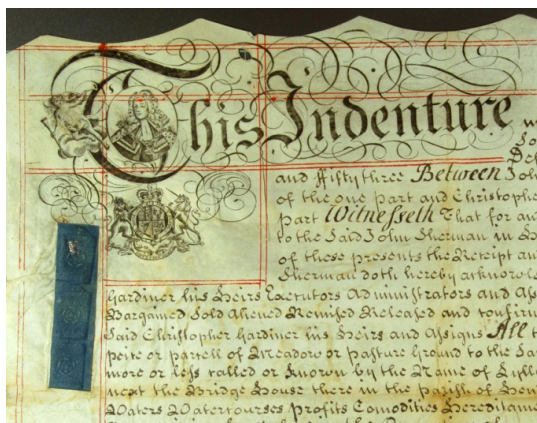 This Indenture
and ffifty three Between John
of the one part and Christophe
part Witnesseth That for an
to the Said John Sherman in
of these presents the Receipt an
Sherman doth hereby acknowle
Gardiner his Heirs Executors Administrators and Ass
Bargained Sold Aliened Remised Released and Confirm
Said Christopher Gardiner his Heirs and Assigns All t
peice or parcell of Meadow or pasture Ground to the Sa
more or less called or known by the Name of
next the Bridge House there in the parish of
Waters Watercourses profits Comodities Hereditame